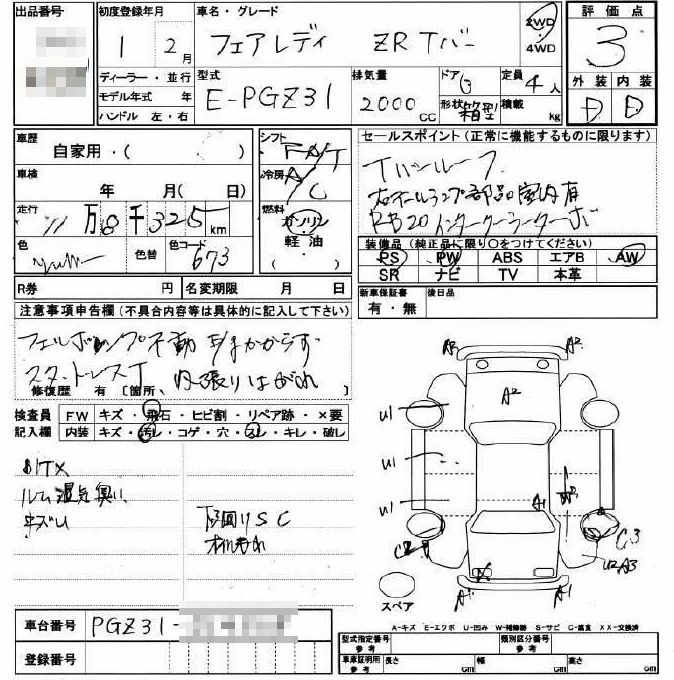 出品番号
初度登録年月
1 年 2 月
車名・グレード
フェアレディ ZR Tバー
2WD
・
4WD
評価点
3
ディーラー・並行
モデル年式 年
ハンドル 左・右
型式
E-PGZ31
排気量
2000 CC
ドア
形状 箱型
定員 4 人
積載 kg
外装 内装
D D
車歴
自家用・( )
シフト
F A/T
車検
年 月( 日)
冷房
A/C
走行
11 万 8 千 325 km
燃料
ガソリン
軽油
・
色
色替
色コード
673
セールスポイント(正常に機能するものに限ります)
Tバールーフ
RB20 インタークーラーターボ
装備品(純正品に限り○をつけてください)
PS PW ABS エアB AW
SR ナビ TV 本革
R券 円
名変期限 月 日
新車保証書
有・無
後日品
注意事項申告欄(不具合内容等は具体的に記入して下さい)
フェルポンプ不動
内張りはがれ
修復歴 有 〔箇所、 〕
検査員
記入欄
FW キズ・飛石・ヒビ割・リペア跡・×要
内装 キズ・汚れ・コゲ・穴・スレ・キレ・破し
ルーム湿気臭い
下回りSC
A2 A2
A2
U1
U1
U1
A1
W3
C3
U2A3
A1 A1
X
スペア
A-キズ E-エクボ U-凹み W-補修跡 S-サビ C-腐食 XX-交換済
車台番号
PGZ31-
登録番号
型式指定番号
参考
類別区分番号
参考
車庫証明用
参考
長さ cm
幅 cm
高さ cm